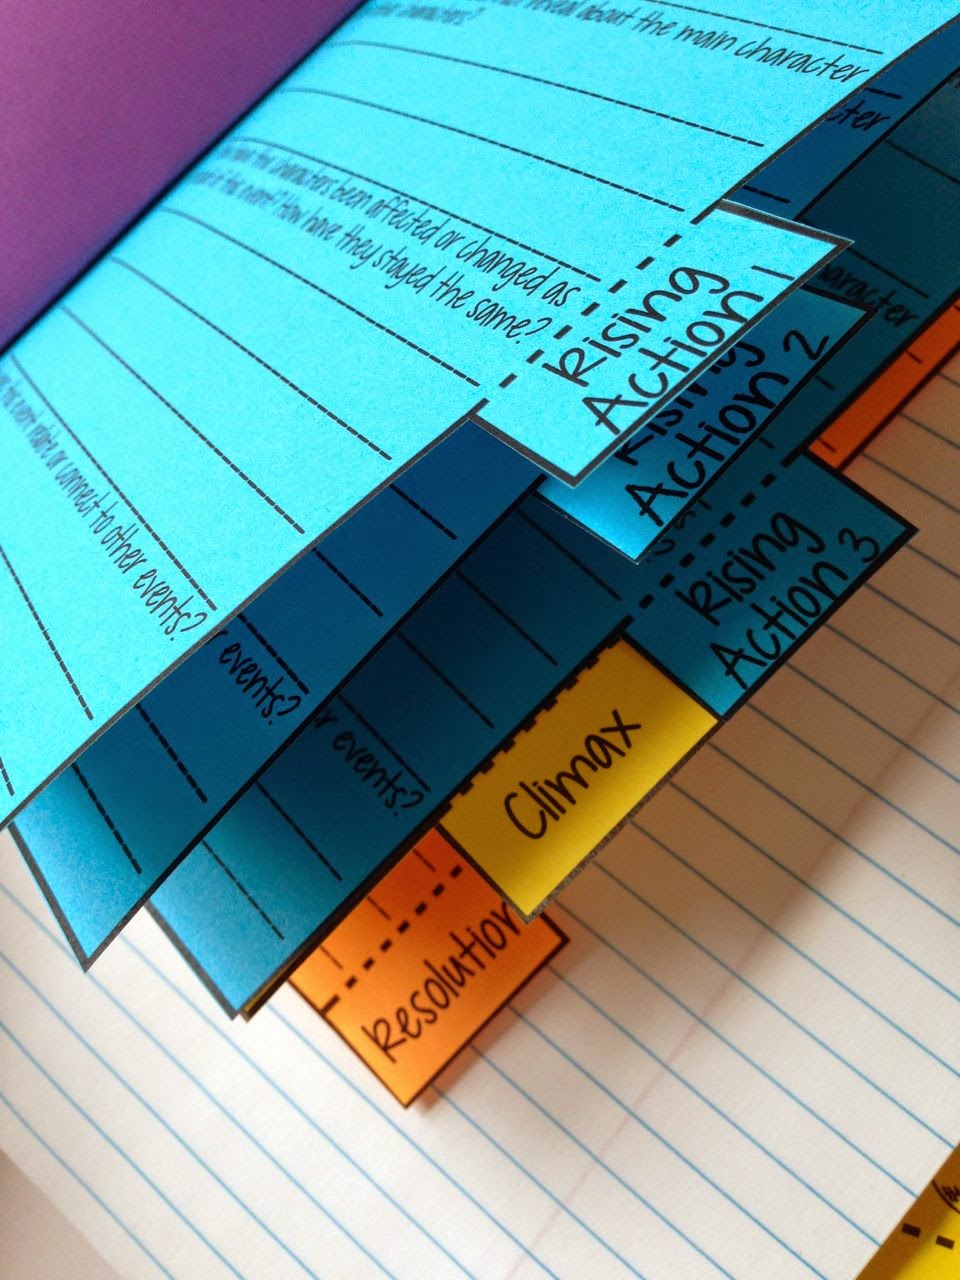 reveal about the main character
characters?
have the characters been affected or changed as
of this event? How have they stayed the same?
this event relate or connect to other events?
Rising
Action 1
Rising
Action 2
Rising
Action 3
character
events?
or events?
Climax
Resolution